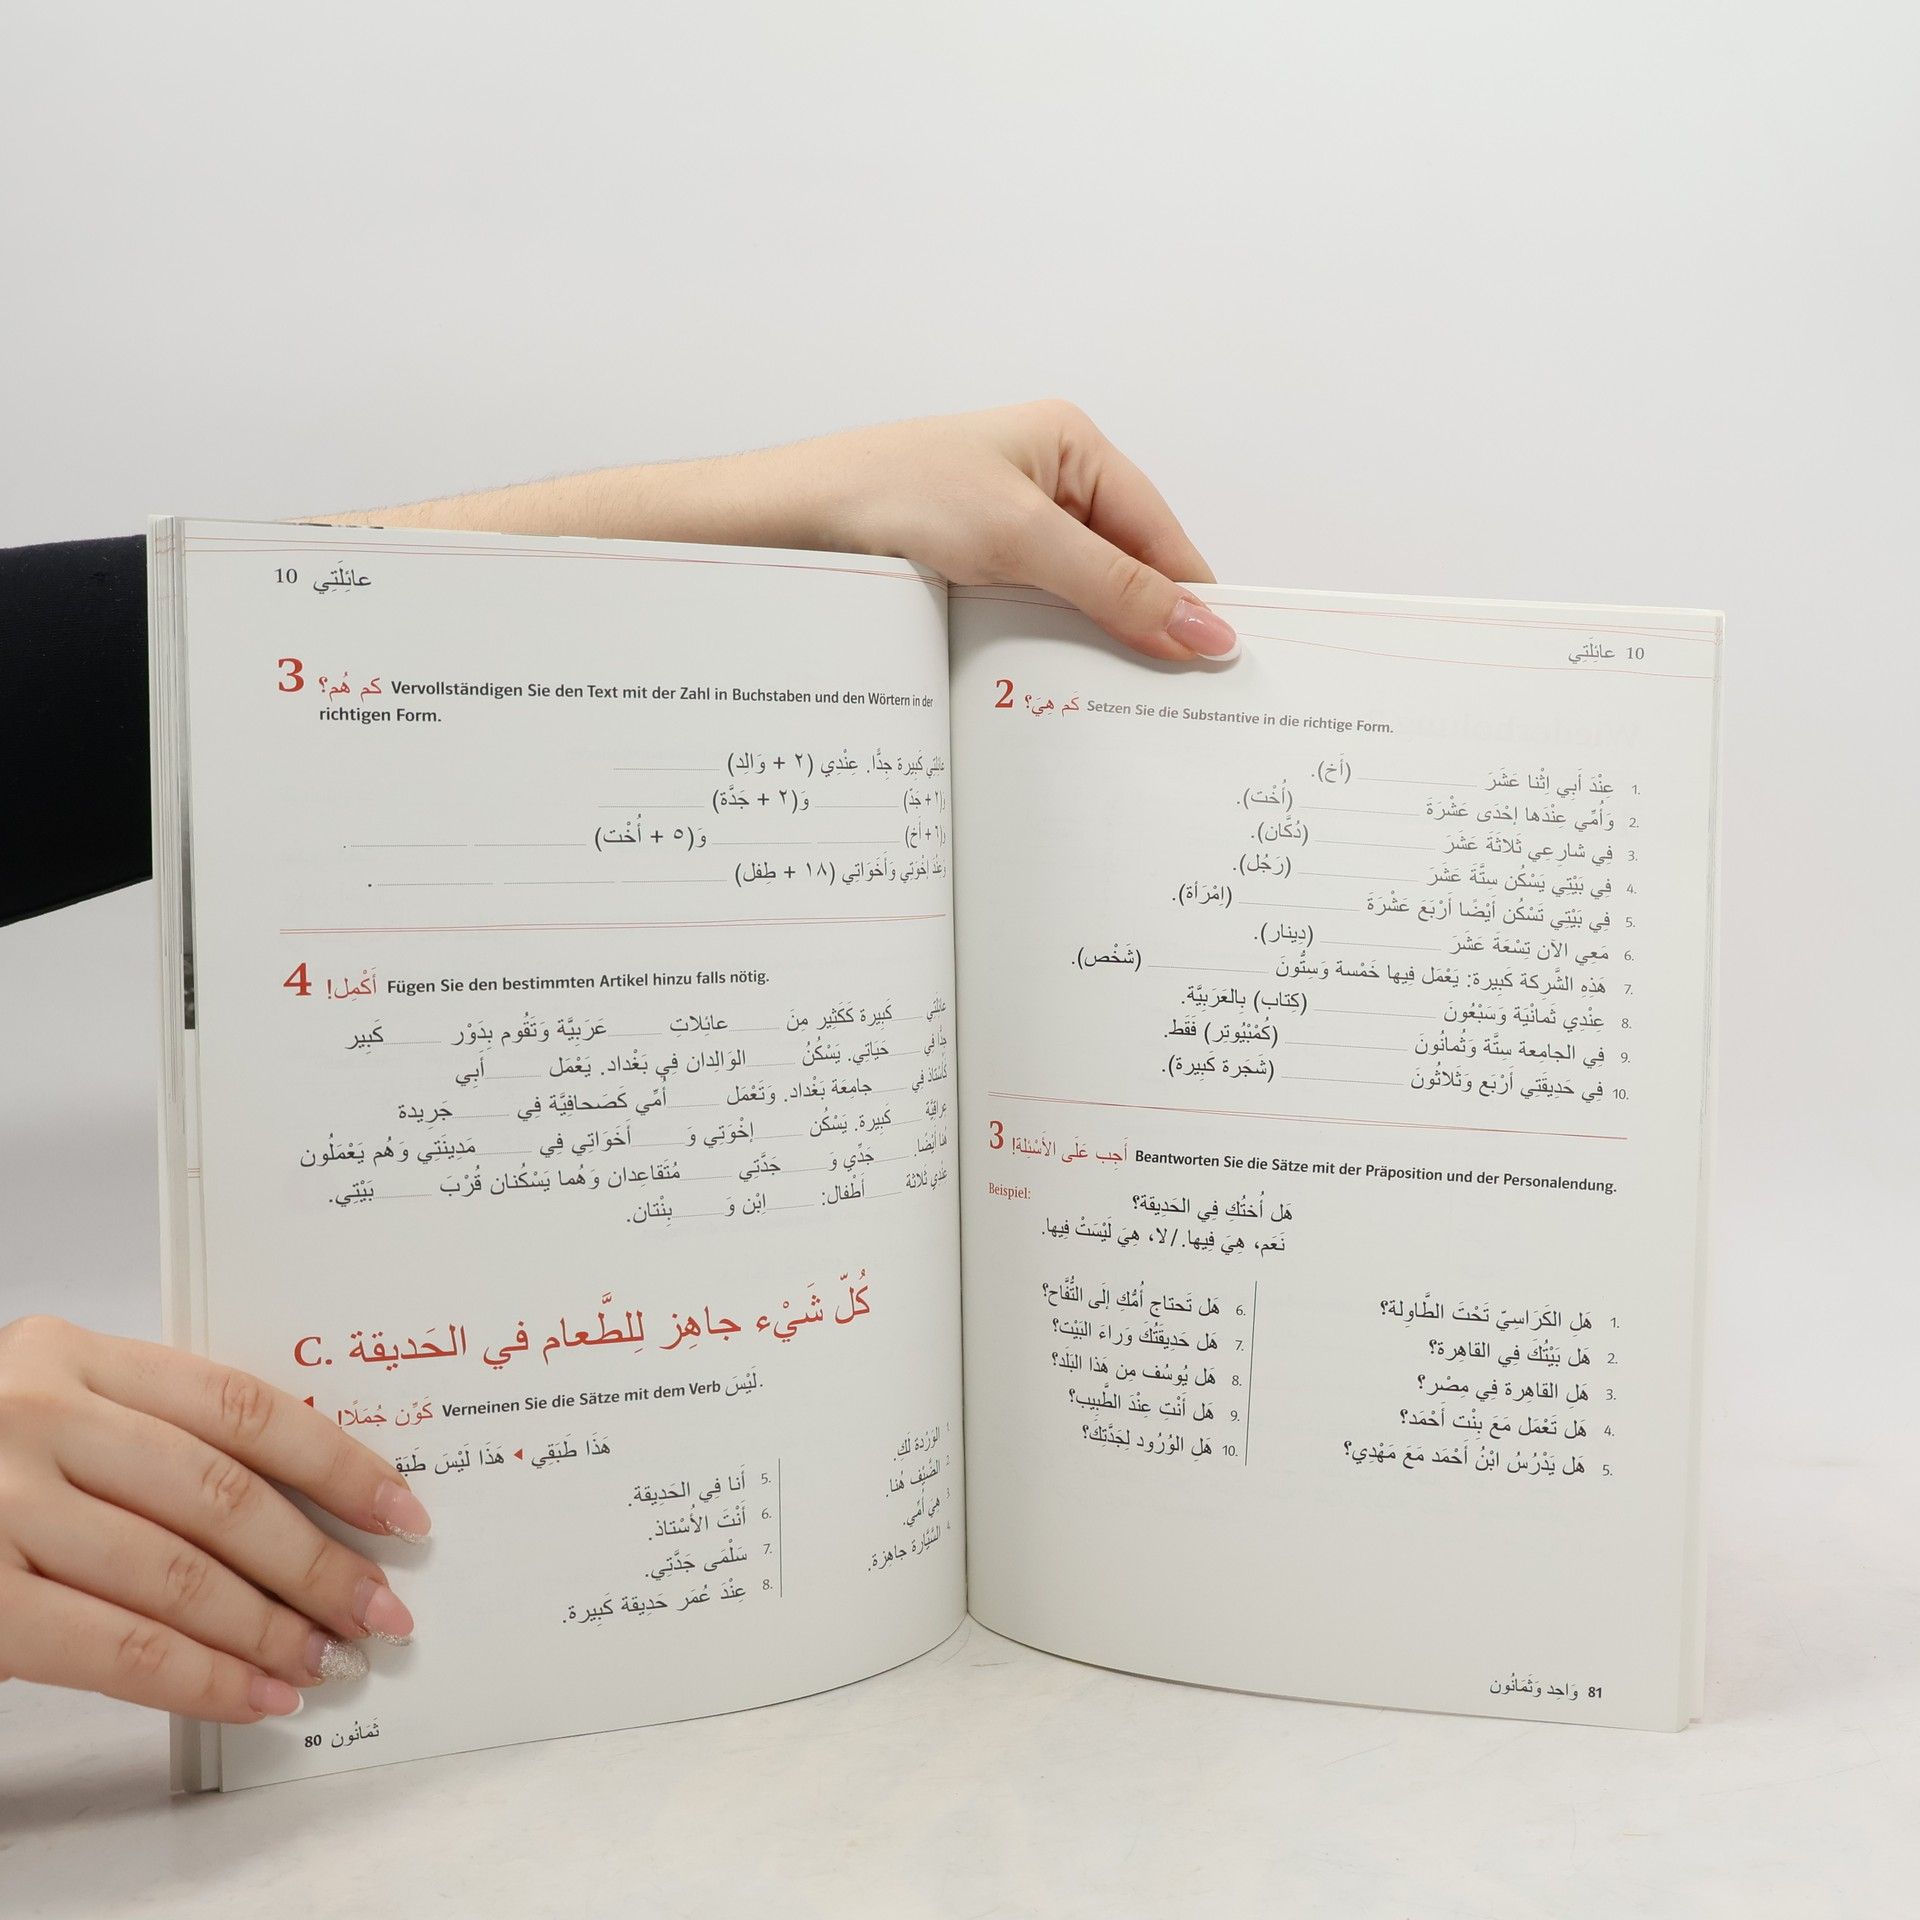 10 عائِلَتِي
3 كم هُم؟ Vervollständigen Sie den Text mit der Zahl in Buchstaben und den Wörtern in der
richtigen Form.
عائلتي كَبيرة جِدًّا. عِنْدِي (٢ + وَالِد)
و(٢ + جَدّ) وَ(٢ + جَدَّة)
و(٦ + أَخ) وَ(٥ + أُخْت) .
وَعِنْدَ إخْوَتِي وَأَخَوَاتِي (١٨ + طِفل) .
4 أَكْمِل! Fügen Sie den bestimmten Artikel hinzu falls nötig.
عائلَتِي كَبيرة كَكَثِير مِنَ عائلاتِ عَرَبِيَّة وَتَقُوم بِدَوْر كَبِير
جِدًّا فِي حَيَاتِي. يَسْكُنُ الوَالِدان فِي بَغْداد. يَعْمَل أَبِي
كَأُستاذ فِي جامِعَة بَغْداد. وَتَعْمَل أُمِّي كَصَحافِيَّة فِي جَرِيدة
عِراقِيَّة كَبِيرة. يَسْكُن إخْوَتِي وَ أَخَوَاتِي فِي مَدِينَتِي وَهُم يَعْمَلُون
هُنا أَيْضًا. جَدِّي وَ جَدَّتِي مُتَقاعِدان وَهُما يَسْكُنان قُرْبَ بَيْتِي.
عِنْدِي ثَلاثة أَطْفال: اِبْن وَ بِنْتان.
C. كُلّ شَيْء جاهِز لِلطَّعام في الحَديقة
كَوِّن جُمَلًا! Verneinen Sie die Sätze mit dem Verb لَيْسَ.
هَذَا طَبَقِي ◂ هَذَا لَيْسَ طَبَقِ
1 الوَرْدة لَكِ.
2 الضَّيْف هُنا.
3 هِيَ أُمِّي.
4 السَّيَّارة جاهِزة.
5. أَنا فِي الحَدِيقة.
6. أَنْتَ الأُسْتاذ.
7. سَلْمَى جَدَّتِي.
8. عِنْدَ عُمَر حَدِيقة كَبِيرة.
80 ثَمَانُون
عائِلَتِي 10
2 كَم هِيَ؟ Setzen Sie die Substantive in die richtige Form.
1. عِنْدَ أَبِي اِثْنا عَشَرَ (أَخ).
2. وَأُمِّي عِنْدَها إحْدَى عَشْرَةَ (أُخْت).
3. فِي شارِعِي ثَلاثَةَ عَشَرَ (دُكَّان).
4. فِي بَيْتِي يَسْكُن سِتَّةَ عَشَرَ (رَجُل).
5. فِي بَيْتِي تَسْكُن أَيْضًا أَرْبَعَ عَشْرَةَ (اِمْرَأة).
6. مَعِي الآن تِسْعَةَ عَشَرَ (دِينار).
7. هَذِهِ الشَّرِكة كَبِيرة: يَعْمَل فِيها خَمْسة وَسِتُّونَ (شَخْص).
8. عِنْدِي ثَمانْيَة وَسَبْعُونَ (كِتاب) بِالعَرَبِيَّة.
9. فِي الجامِعة سِتَّة وَثُمانُونَ (كُمْبْيُوتِر) فَقَط.
10. فِي حَدِيقَتِي أَرْبَع وَثَلاثُونَ (شَجَرة كَبِيرة).
3 أَجِب عَلَى الأَسْئِلة! Beantworten Sie die Sätze mit der Präposition und der Personalendung.
Beispiel:
هَل أُختُكِ فِي الحَدِيقة؟
نَعَم، هِيَ فِيها./لا، هِيَ لَيْسَتْ فِيها.
1. هَلِ الكَرَاسِيّ تَحْتَ الطَّاوِلة؟
2. هَل بَيْتُكَ فِي القاهِرة؟
3. هَلِ القاهِرة فِي مِصْر؟
4. هَل تَعْمَل مَعَ بِنْت أَحْمَد؟
5. هَل يَدْرُسُ ابْنُ أَحْمَد مَعَ مَهْدِي؟
6. هَل تَحتاج أُمُّكِ إلَى التُّفَّاح؟
7. هَل حَدِيقَتُكَ وَراءَ البَيْت؟
8. هَل يُوسُف مِن هَذا البَلَد؟
9. هَل أَنْتِ عِنْدَ الطَّبِيب؟
10. هَلِ الوُرُود لِجَدَّتِكَ؟
وَاحِد وَثَمَانُون 81